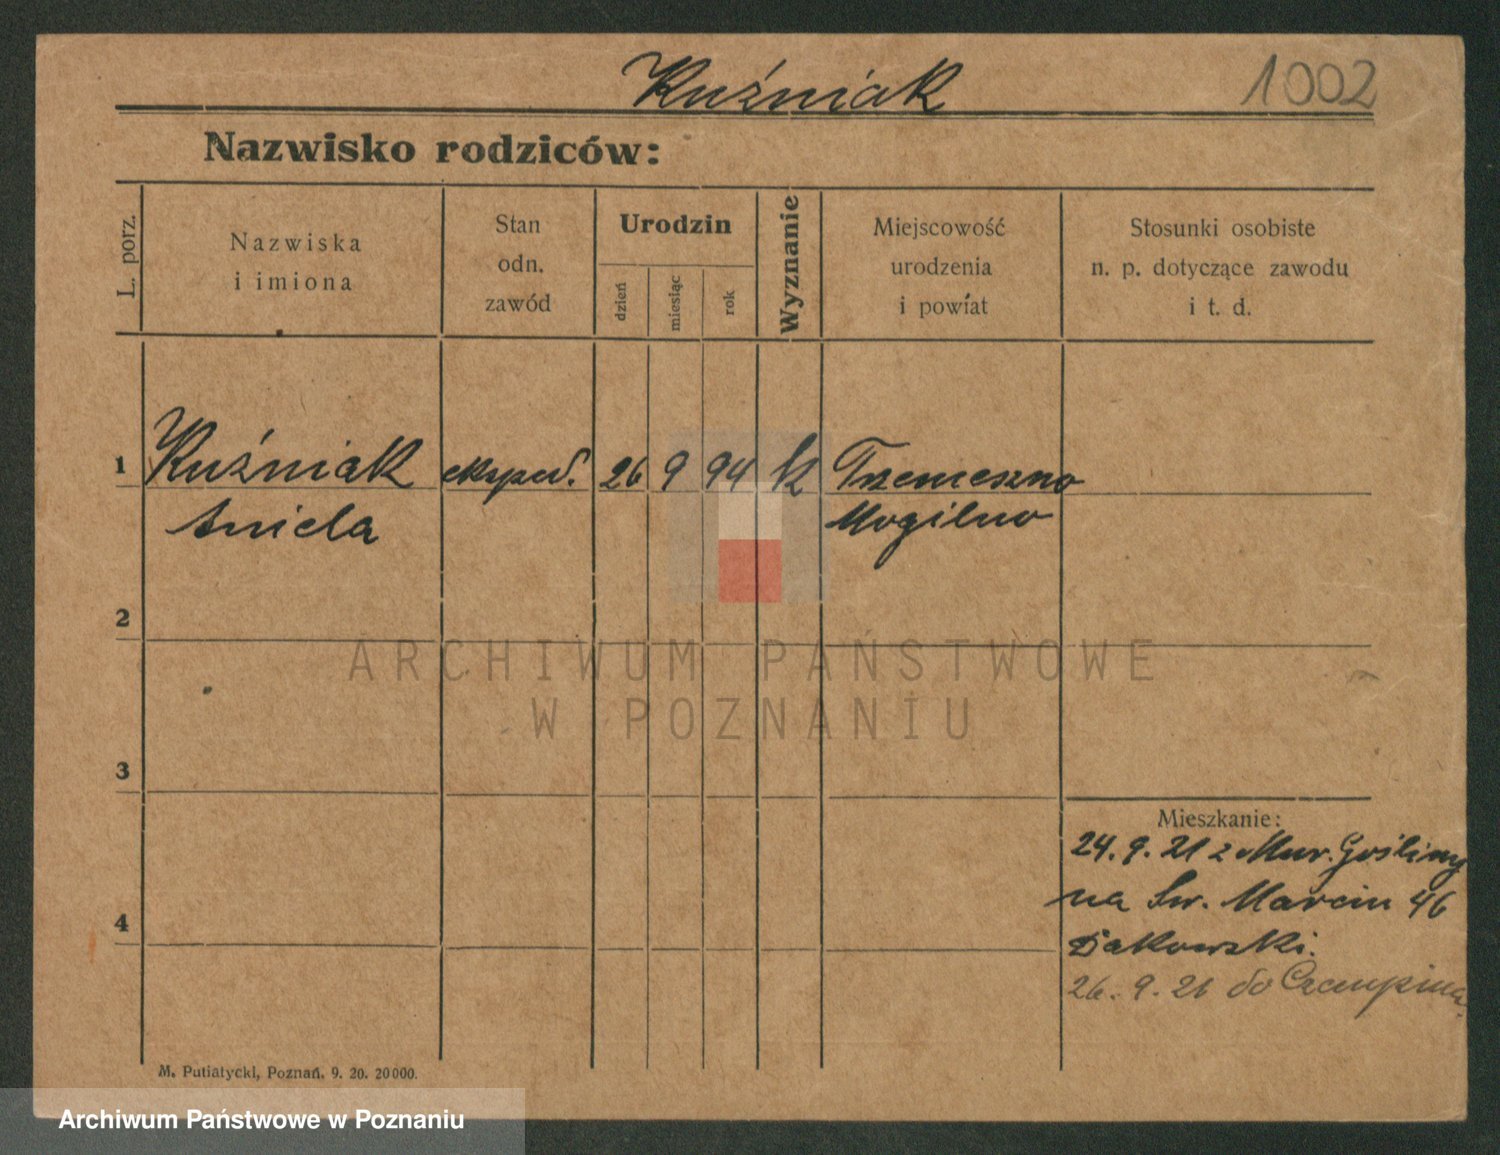 Kuźniak
1002
Nazwisko rodziców:
L. porz.
Nazwiska
i imiona
Stan
odn.
zawód
Urodzin
dzień
miesiąc
rok
Wyznanie
Miejscowość
urodzenia
i powiat
Stosunki osobiste
n. p. dotyczące zawodu
i t. d.
1 Kuźniak eksped. 26 9 94 k Trzemeszno
Aniela Mogilno
2
ARCHIWUM PAŃSTWOWE
W POZNANIU
3
Mieszkanie:
24. 9. 21 z Mur. Gośliny
na Św. Marcin 46
4
26. 9. 21 do Czempinia
M. Putiatycki, Poznań. 9. 20. 20000.
Archiwum Państwowe w Poznaniu